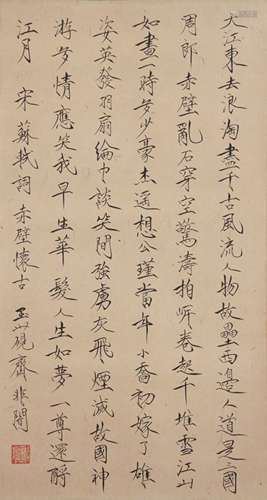 大江東去浪淘盡千古風流人物故壘西邊人道是三國
周郎赤壁亂石穿空驚濤拍岸卷起千堆雪江山
如畫一時多少豪杰遥想公瑾當年小喬初嫁了雄
姿英發羽扇綸巾談笑間強虜灰飛煙滅故國神
游多情應笑我早生華髮人生如夢一尊還酹
江月 宋 蘇軾詞 赤壁懷古 玉山硯齋 非闇